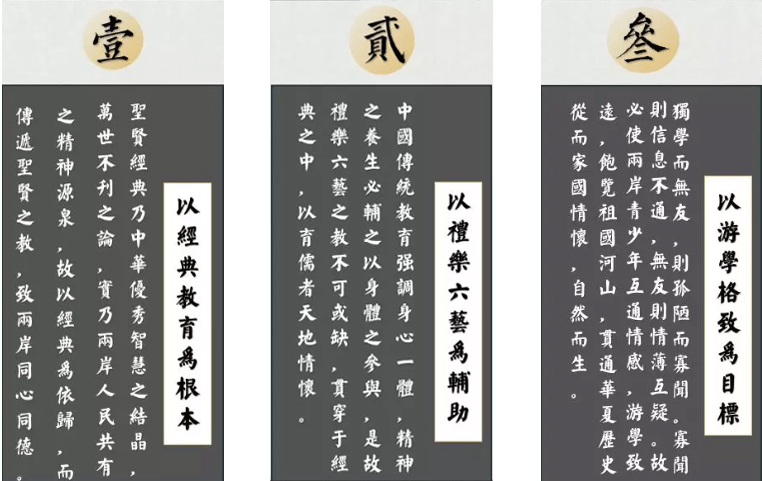 壹
以經典教育爲根本
聖賢經典乃中華優秀智慧之結晶，
萬世不刊之論，實乃兩岸人民共有
之精神源泉，故以經典爲依歸，而
傳遞聖賢之教，致兩岸同心同德。
貳
以禮樂六藝爲輔助
中國傳統教育强調身心一體，精神
之養生必輔之以身體之參與，是故
禮樂六藝之教不可或缺，貫穿于經
典之中，以育儒者天地情懷。
叁
以游學格致爲目標
獨學而無友，則孤陋而寡聞。寡聞
則信息不通，無友則情薄互疑。故
必使兩岸青少年互通情感，游學致
遠，飽覽祖國河山，貫通華夏歷史
從而家國情懷，自然而生。